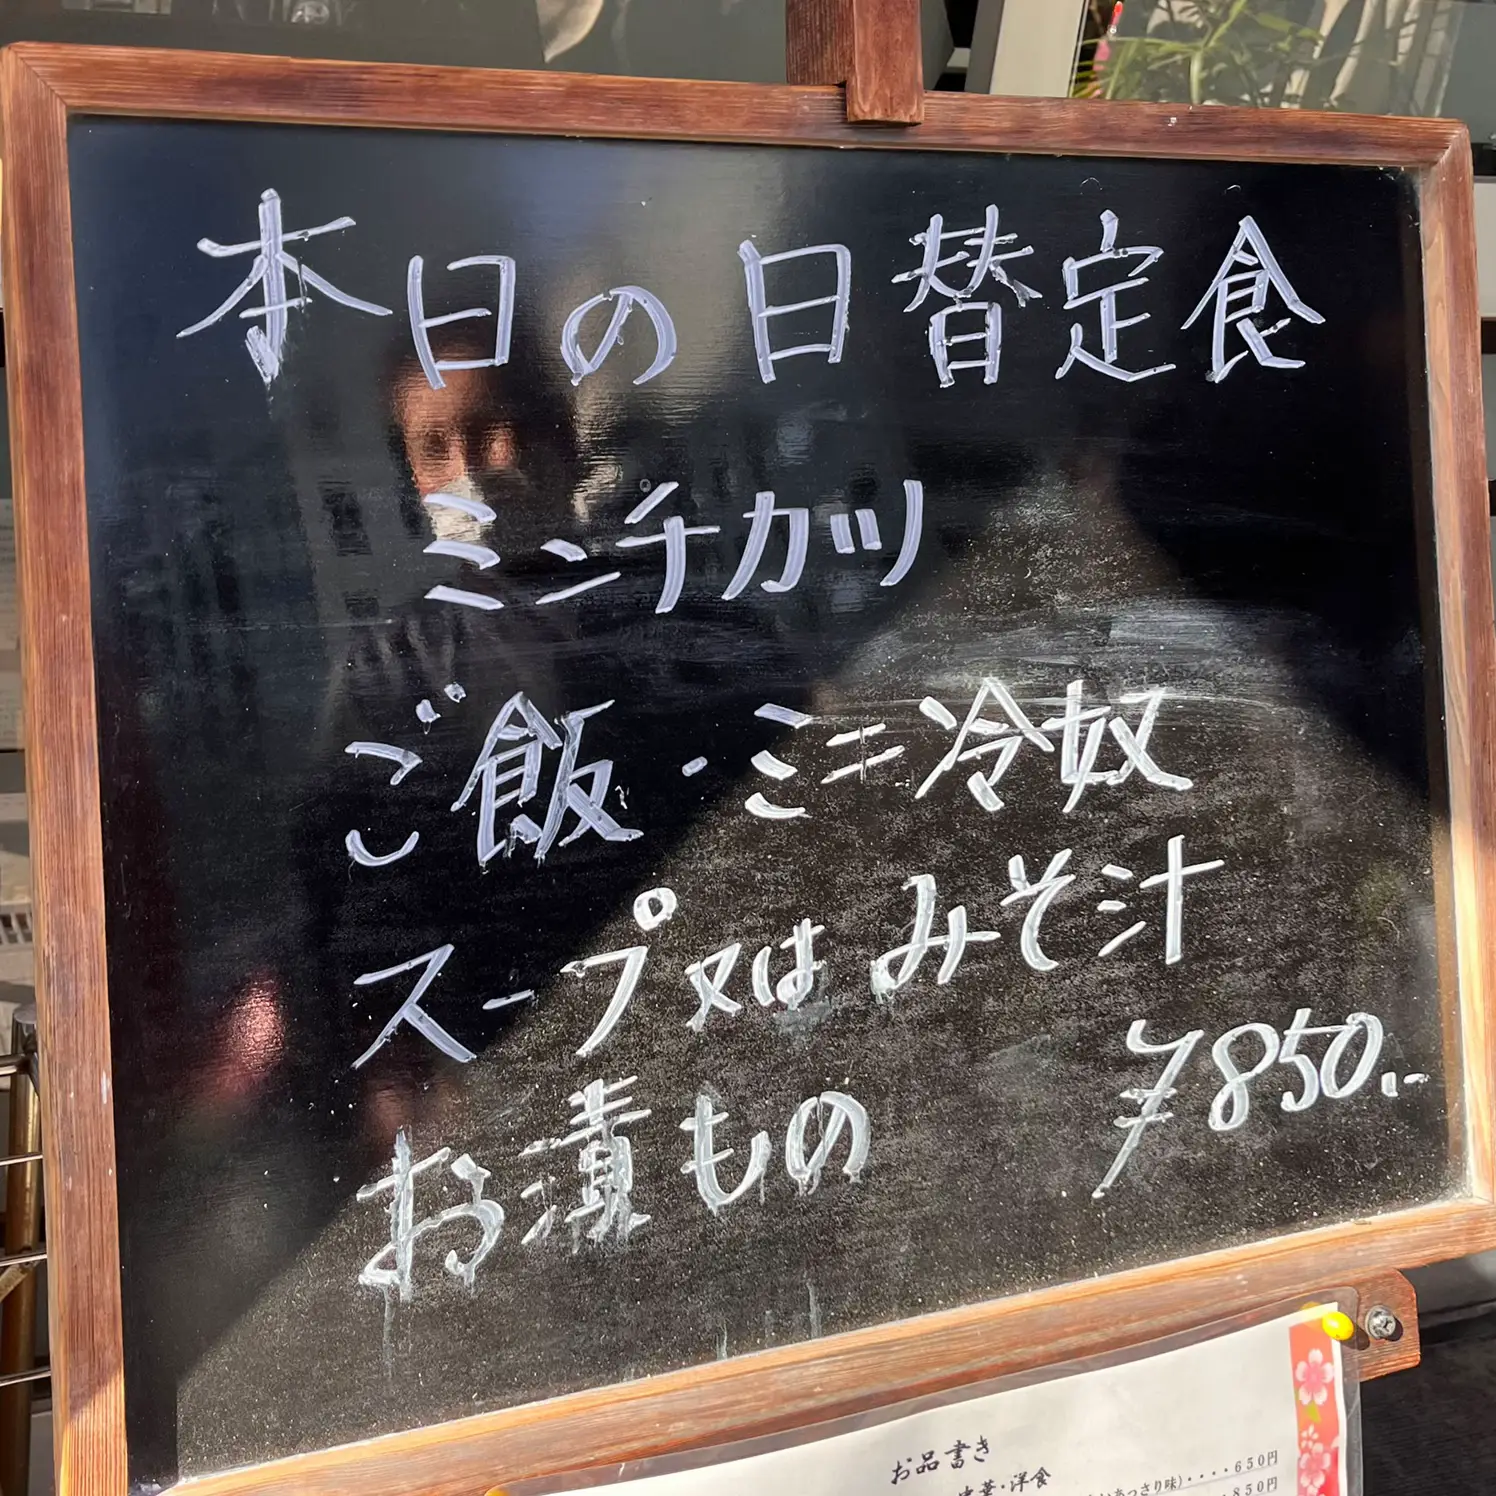 本日の日替定食
ミンチカツ
ご飯・ミニ冷奴
スープ又はみそ汁
お漬もの ¥850.-
お品書き
中華・洋食
あっさり味)・・・・650円
850円